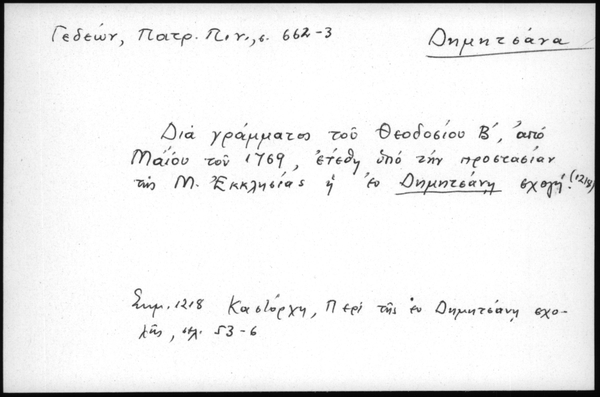 Γεδεών, Πατρ. Πιν., σ. 662-3
Δημητσάνα
Διὰ γράμματος τοῦ Θεοδοσίου Β', ἀπὸ
Μαΐου τοῦ 1769, ἐτέθη ὑπὸ τὴν προστασίαν
τῆς Μ. Ἐκκλησίας ἡ ἐν Δημητσάνῃ σχολή. (1218)
Σημ. 1218 Καστόρχη, Περὶ τῆς ἐν Δημητσάνῃ σχο-
λῆς, σελ. 53-6